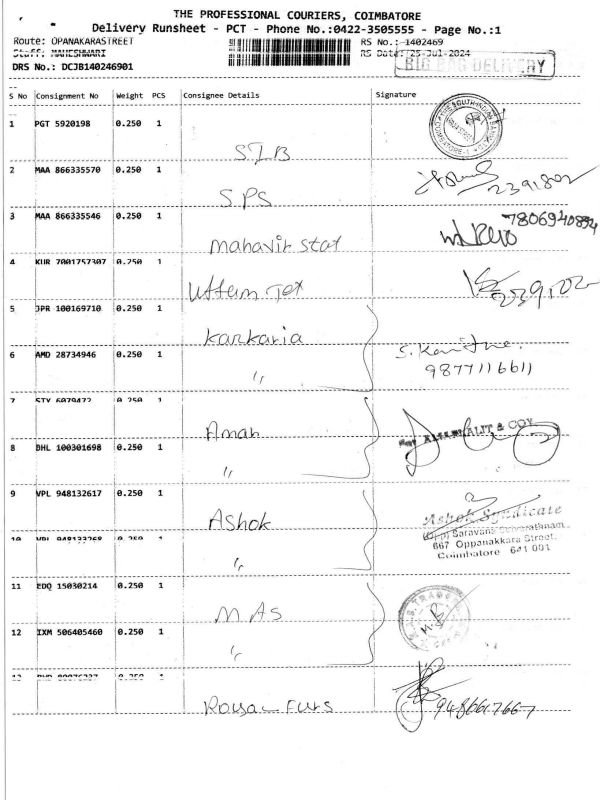 THE PROFESSIONAL COURIERS, COIMBATORE
Delivery Runsheet - PCT - Phone No.:0422-3505555 - Page No.:1
Route: OPANAKARASTREET RS No.: 1402469
Staff: MAHESHWARI RS Date: 25-Jul-2024
DRS No.: DCJB140246901 BIG BAG DELIVERY
S No Consignment No Weight PCS Consignee Details Signature
1 PGT 5920198 0.250 1
SIB
2 MAA 866335570 0.250 1
SPS 2391802
3 MAA 866335546 0.250 1 7806940894
mahavir stat
4 KUR 7001757307 0.250 1
Uttam Tex 2239102
5 JPR 100169710 0.250 1
Karkaria
6 AMD 28734946 0.250 1
" 9877116611
7 STY 6079472 0.250 1
Aman & COY
8 DHL 100301698 0.250 1
"
9 VPL 948132617 0.250 1
Ashok Ashok Syndicate
10 VPL 948133268 0.250 1
667 Oppanakkara Street,
" Coimbatore 641 001
11 EDQ 15030214 0.250 1
MAS
12 IXM 506405460 0.250 1
"
13 0.250 1
Royal Furs 9486617667